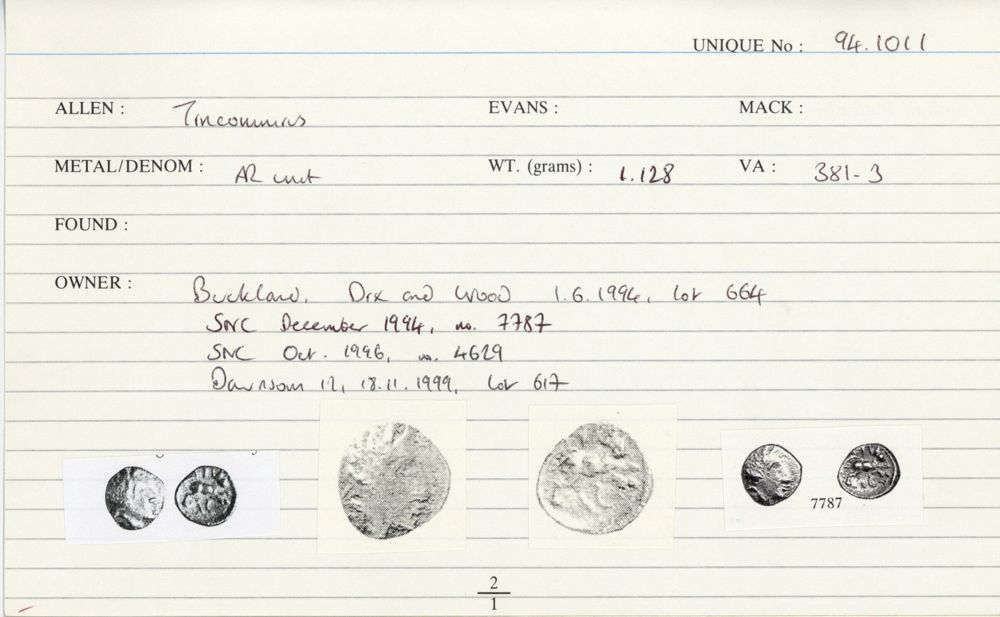 UNIQUE No : 94.1011
ALLEN : Tincommius EVANS : MACK :
METAL/DENOM : AR unit WT. (grams) : 1.128 VA : 381-3
FOUND :
OWNER : Buckland, Dix and Wood 1.6.1994, lot 664
SNC December 1994, no. 7787
SNC Oct. 1996, no. 4629
18.11.1999, lot 617
7787
2
1